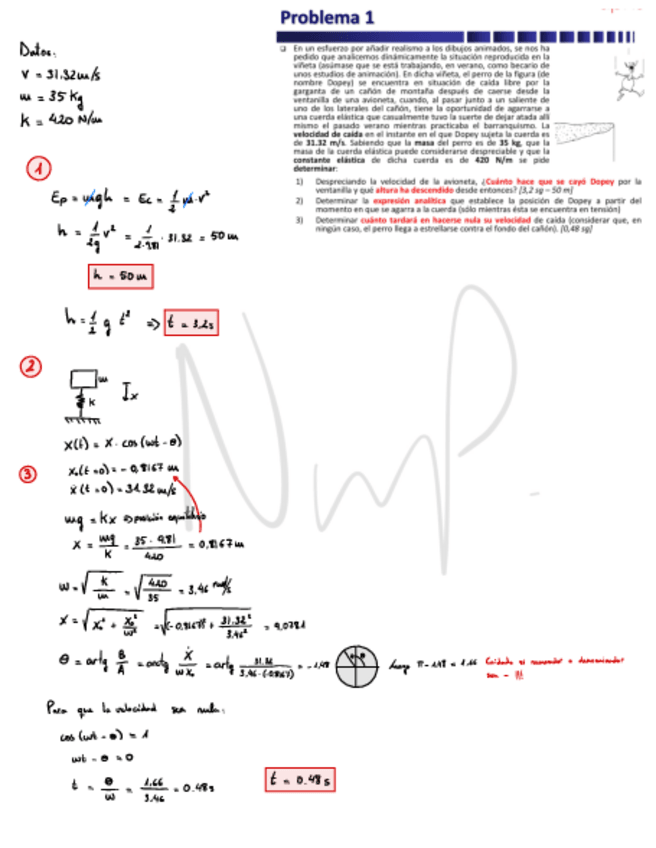 Problema 1
❑ En un esfuerzo por añadir realismo a los dibujos animados, se nos ha
pedido que analicemos dinámicamente la situación reproducida en la
viñeta (asúmase que se está trabajando, en verano, como becario de
unos estudios de animación). En dicha viñeta, el perro de la figura (de
nombre Dopey) se encuentra en situación de caída libre por la
garganta de un cañón de montaña después de caerse desde la
ventanilla de una avioneta, cuando, al pasar junto a un saliente de
uno de los laterales del cañón, tiene la oportunidad de agarrarse a
una cuerda elástica que casualmente tuvo la suerte de dejar atada allí
mismo el pasado verano mientras practicaba el barranquismo. La
velocidad de caída en el instante en el que Dopey sujeta la cuerda es
de 31.32 m/s. Sabiendo que la masa del perro es de 35 kg, que la
masa de la cuerda elástica puede considerarse despreciable y que la
constante elástica de dicha cuerda es de 420 N/m se pide
determinar:
1) Despreciando la velocidad de la avioneta, ¿Cuánto hace que se cayó Dopey por la
ventanilla y qué altura ha descendido desde entonces? [3,2 sg – 50 m]
2) Determinar la expresión analítica que establece la posición de Dopey a partir del
momento en que se agarra a la cuerda (sólo mientras ésta se encuentra en tensión)
3) Determinar cuánto tardará en hacerse nula su velocidad de caída (considerar que, en
ningún caso, el perro llega a estrellarse contra el fondo del cañón). [0,48 sg]
Datos:
V = 31.32 m/s
m = 35 Kg
K = 420 N/m
1
Ep = mgh = Ec = 1/2 m·v²
h = 1/2g v² = 1/2·9.81 · 31.32 = 50 m
h = 50 m
h = 1/2 g t² => t = 3.2 s
2
m
K
x
X(t) = X · cos (wt - θ)
3
X₀(t=0) = -0,8167 m
Ẋ(t=0) = 31.32 m/s
mg = Kx => posición equilibrio
X = mg/K = 35 · 9.81/420 = 0,8167 m
w = √(K/m) = √(420/35) = 3,46 rad/s
X = √(X₀² + Ẋ₀²/w²) = √((-0,8167)² + 31.32²/3.46²) = 9,0781
θ = artg B/A = arctg Ẋ/wX₀ = artg 31.32/3.46·(-0.8167) = -1,48
luego π - 1.48 = 1.66
Cuidado si numerador o denominador
son - !!!
Para que la velocidad sea nula:
cos (wt - θ) = 1
wt - θ = 0
t = θ/w = 1.66/3.46 = 0.48 s
t = 0.48 s
NmP